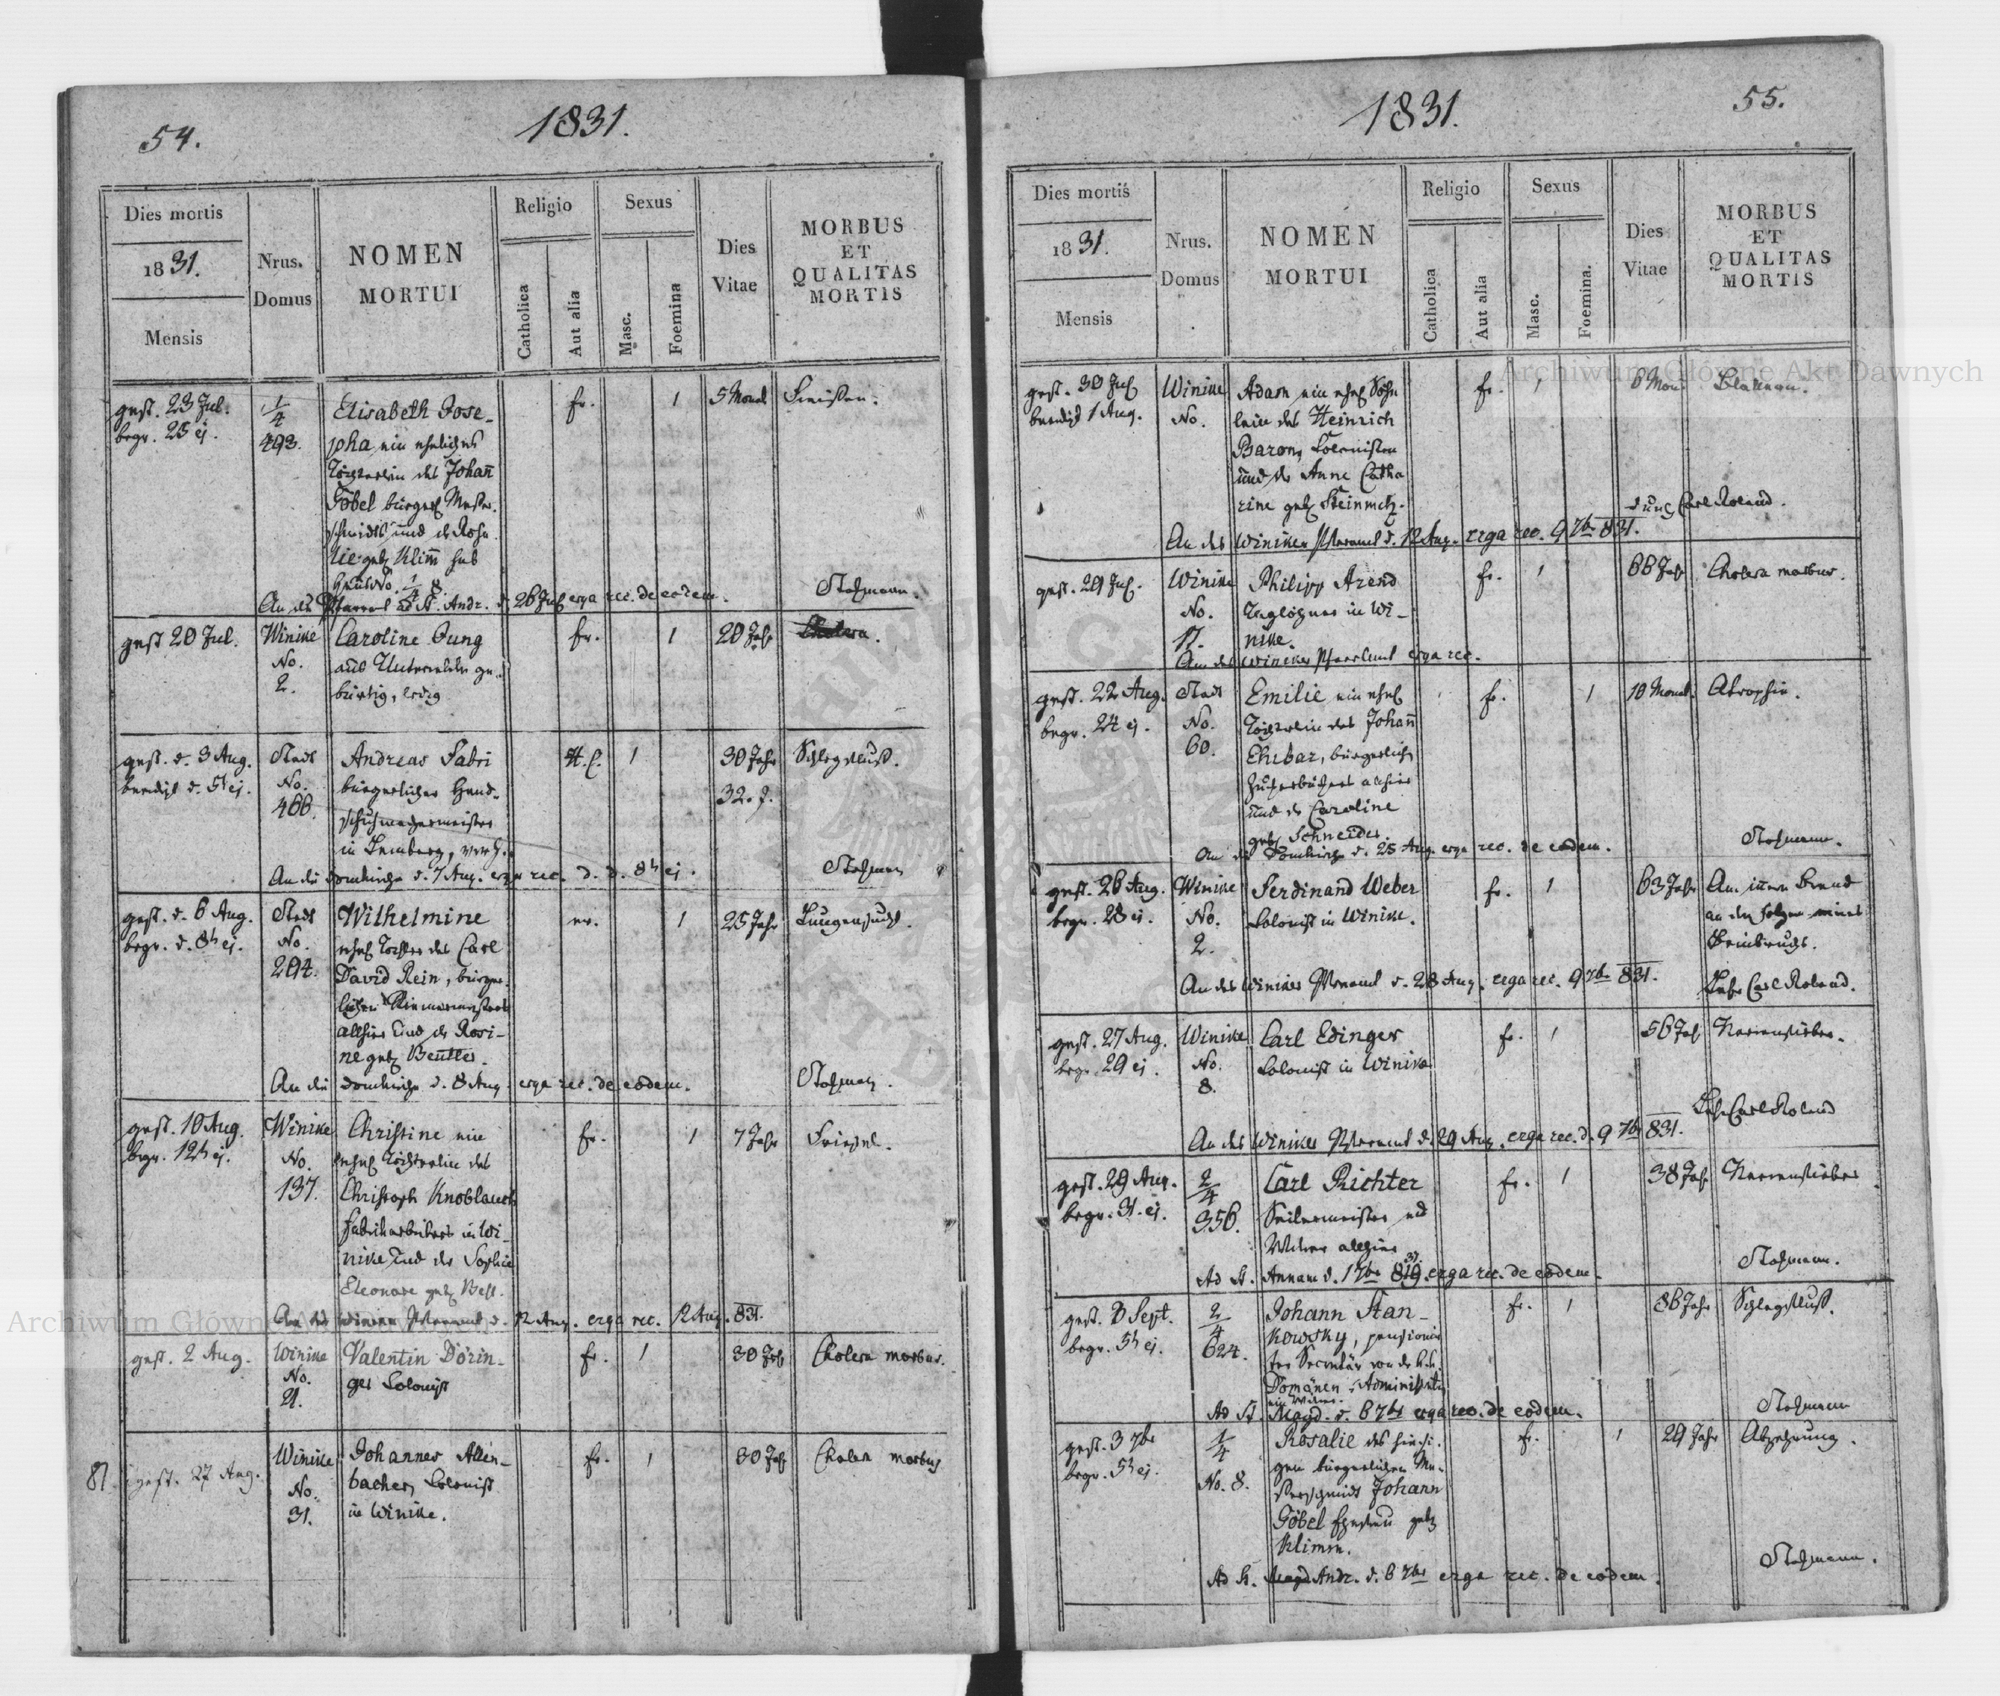 54.
1831.
Dies mortis
1831.
Mensis
Nrus.
Domus
NOMEN
MORTUI
Religio
Catholica
Aut alia
Sexus
Masc.
Foemina
Dies
Vitae
MORBUS
ET
QUALITAS
MORTIS
gest. 23 Jul.
begr. 25 ej.
1/4
493.
Elisabeth Jose-
pha ein eheliches
Töchterlein des Johañ
Göbel bürgerl Messer-
schmidts und der Rosa-
lie geb Klim̃ sub
No. 1/4 8.
fr.
1
5 Monat
Fraisen.
An das Pfarramt ad St. Andr. d. 26 Jul erga rec. de eodem.
Stohmann.
gest 20 Jul.
Winike
No.
2.
Caroline Jung
aus Unterwalden ge-
bürtig, ledig
fr.
1
20 Jah
Cholera.
gest. d. 3 Aug.
beerdigt d. 5t ej.
Stadt
No.
466.
Andreas Fabri
bürgerlicher Hand-
schuhmachermeister
in Lemberg, verh.
H. C.
1
30 Jahr
32. J.
Schlagfluß.
An die Domkirche d. 7 Aug. erga rec. d. d. 8t ej.
Stohmann
gest. d. 6 Aug.
begr. d. 8t ej.
Stadt
No.
294.
Wilhelmine
ehel Tochter des Carl
David Rein, bürger-
lichen Riemermeisters
allhier und der Rosi-
ne geb Beutler.
ev.
1
25 Jahr
Lungensucht.
An die Domkirche d. 8 Aug. erga rec. de eodem.
Stohmann.
gest. 10 Aug.
begr. 12t ej.
Winike
No.
137.
Christine ein
ehel Töchterlein des
Christoph Knoblauch
Fabrikarbeiters in Wi-
nike und der Sophie
Eleonore geb
fr.
1
7 Jahr
Friesel.
An das Winiker Pfarramt d. 12 Aug. erga rec. 12 Aug. 831.
gest. 2 Aug.
Winike
No.
21.
Valentin Dörin-
ger Colonist
fr.
1
30 Jah
Cholera morbus.
81
gest. 27 Aug.
Winike
No.
31.
Johannes Allen-
bacher, Colonist
in Winike.
fr.
1
30 Jah
Cholera morbus
55.
1831.
Dies mortis
1831.
Mensis
Nrus.
Domus
NOMEN
MORTUI
Religio
Catholica
Aut alia
Sexus
Masc.
Foemina.
Dies
Vitae
MORBUS
ET
QUALITAS
MORTIS
gest. 30 Jul
beerdigt 1 Aug.
Winike
No.
Adam ein ehel Söhn
lein des Heinrich
Baron, Colonisten
und der Anne Catha
rine geb Steinmetz.
fr.
1
6 Mon
Blattern.
durch Carl Roland.
An das Winiker Pfarramt d. 12 Aug. erga rec. 9 7br 831.
gest. 29 Jul.
Winike
No.
17.
Philipp Arend
Taglöhner in Wi-
nike.
fr.
1
66 Jah
Cholera morbus.
An das Winiker Pfarramt erga rec.
gest. 22 Aug.
begr. 24 ej.
Stadt
No.
60.
Emilie ein ehel
Töchterlein des Johañ
Ehrbar, bürgerlich
Zuckerbäckers allhier
und der Caroline
geb Schneider.
fr.
1
10 Monat.
Atrophie.
An die Domkirche d. 25 Aug. erga rec. de eodem.
Stohmann.
gest. 26 Aug.
begr. 28 ej.
Winike
No.
2.
Ferdinand Weber
Colonist in Winike.
fr.
1
63 Jahr
Am innern Brand
an den Folgen eines
Beinbruchs.
An das Winiker Pfarramt d. 28 Aug. erga rec. 9 7br 831.
Lehr Carl Roland.
gest. 27 Aug.
begr. 29 ej.
Winike
No.
8.
Carl Edinger
Colonist in Winike
fr.
1
56 Jah
Nervenfieber.
Lehr Carl Roland
An das Winiker Pfarramt d. 29 Aug. erga rec. d. 9 7br 831.
gest. 29 Aug.
begr. 31. ej.
2/4
356.
Carl Richter
Seilermeister und
Witwer allhier
fr.
1
38 Jah
Nervenfieber
Ad St. Annam d. 1 7br 831. erga rec. de eodem.
Stohmann.
gest. 3 Sept.
begr. 5t ej.
2/4
624.
Johann Stan-
kowsky, pensionir
ter Secretär von der k. k.
Domänen Administration
ein Witwer.
fr.
1
86 Jahr
Schlagfluß.
Ad St. Magd. d. 6 7br erga rec. de eodem.
Stohmann
gest. 3 7br
begr. 5t ej.
1/4
No. 8.
Rosalie des hiesi-
gen bürgerlichen Me-
sserschmidt Johann
Göbel Ehefrau geb
Klimm.
fr.
1
29 Jahr
Abzehrung.
Ad St. Magd Andr. d. 6 7br erga rec. de eodem.
Stohmann.
Archiwum Główne Akt Dawnych
Archiwum Główne Akt Dawnych